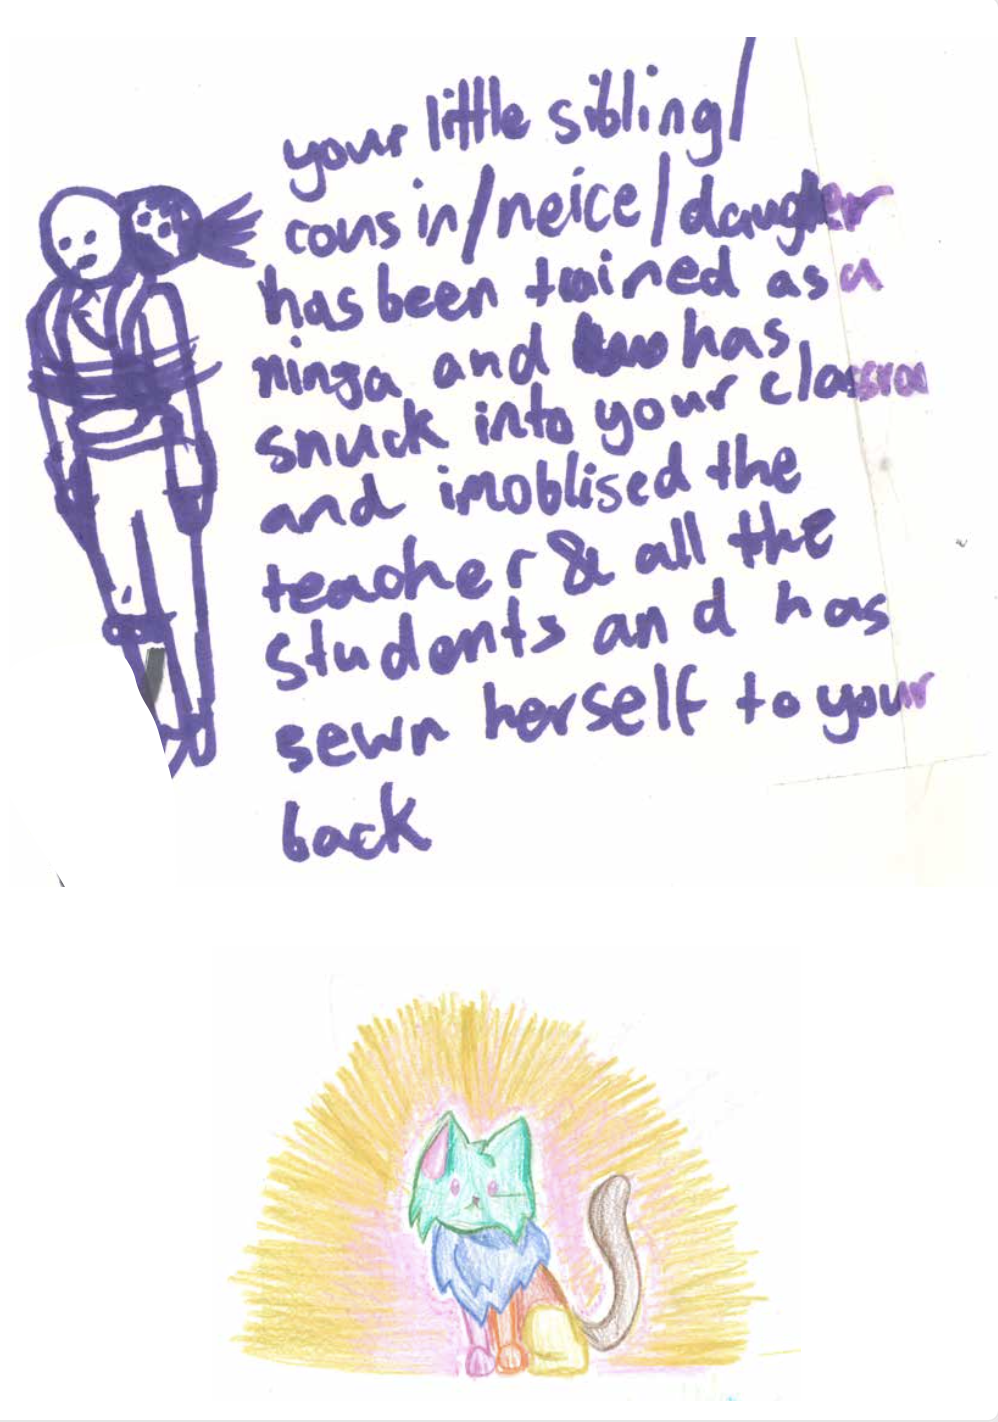 your little sibling/
cousin/neice/daugter
has been trained as a
ninja and has
snuck into your classroo
and imoblised the
teacher & all the
students and has
sewn herself to your
back